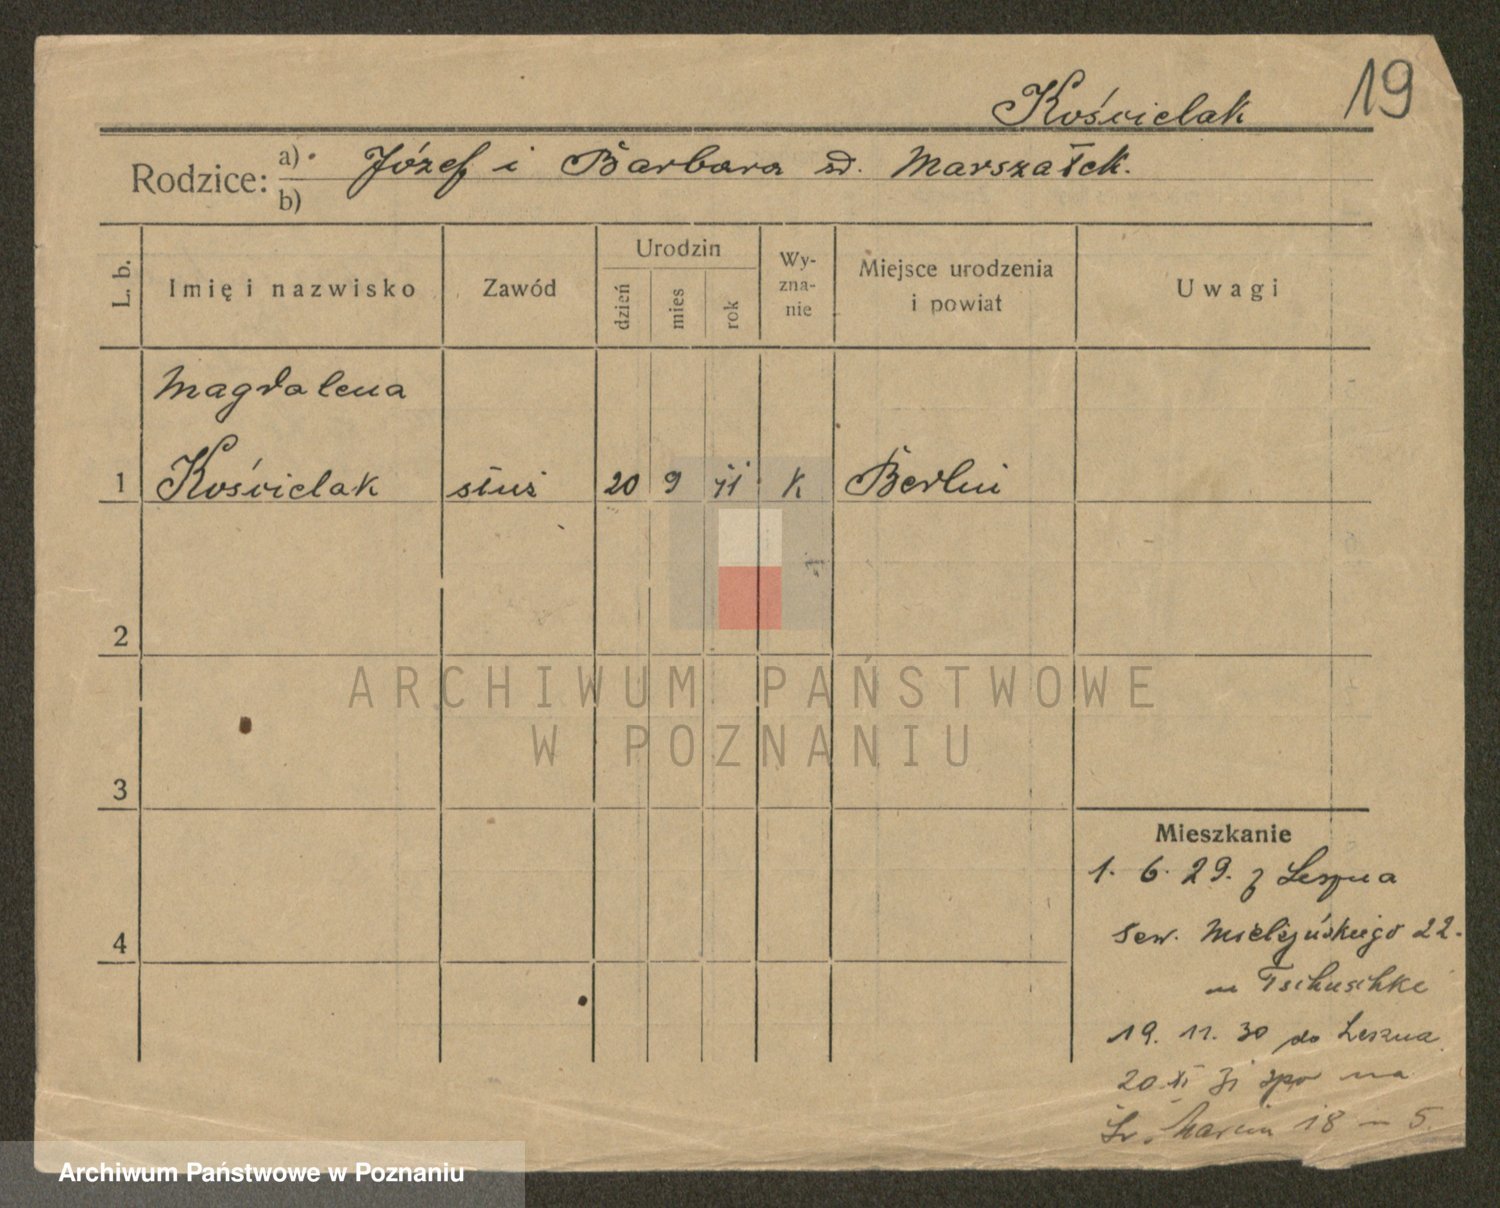 19
Kościelak
Rodzice: a) Józef i Barbara zd. Marszałek.
b)
L. b. Imię i nazwisko Zawód Urodzin dzień mies rok Wyznanie Miejsce urodzenia i powiat Uwagi
Magdalena
1 Kościelak służ 20 9 11 K Berlin
2
3
4
Mieszkanie
1. 6. 29. z Leszna
Sew. Mielżyńskiego 22.
m Tschuschke
19. 11. 30 do Leszna
20 XI 31 na
Św. Marcin 18 m 5.
ARCHIWUM PAŃSTWOWE
W POZNANIU
Archiwum Państwowe w Poznaniu